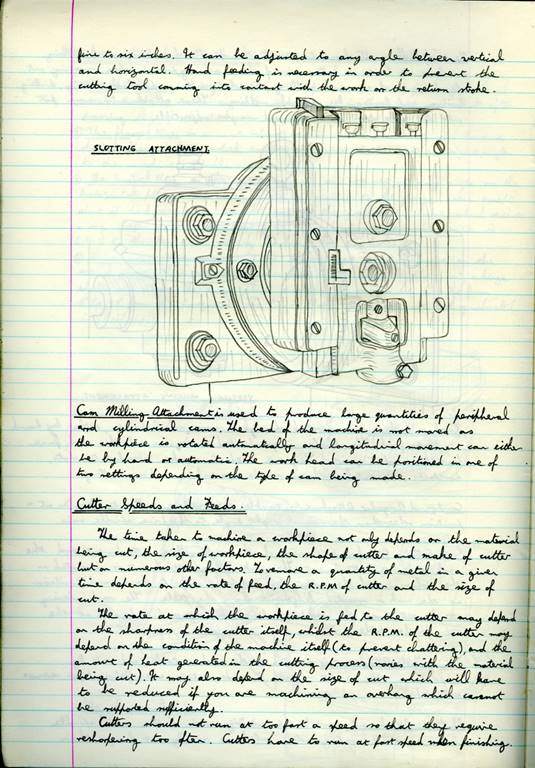 five to six inches. It can be adjusted to any angle between vertical
and horizontal. Hand feeding is necessary in order to prevent the
cutting tool coming into contact with the work on the return stroke.
SLOTTING ATTACHMENT.
Cam Milling Attachment is used to produce large quantities of peripheral
and cylindrical cams. The bed of the machine is not moved as
the workpiece is rotated automatically and longitudinal movement can either
be by hand or automatic. The work head can be positioned in one of
two settings depending on the type of cam being made.
Cutter Speeds and Feeds.
The time taken to machine a workpiece not only depends on the material
being cut, the size of workpiece, the shape of cutter and make of cutter
but on numerous other factors. To remove a quantity of metal in a given
time depends on the rate of feed, the R.P.M of cutter and the size of
cut.
The rate at which the workpiece is fed to the cutter may depend
on the sharpness of the cutter itself, whilst the R.P.M. of the cutter may
depend on the condition of the machine itself (to prevent chattering), and the
amount of heat generated in the cutting process (varies with the material
being cut). It may also depend on the size of cut which will have
to be reduced if you are machining an overhang which cannot
be supported sufficiently.
Cutters should not run at too fast a speed so that they require
resharpening too often. Cutters have to run at fast speed when finishing.